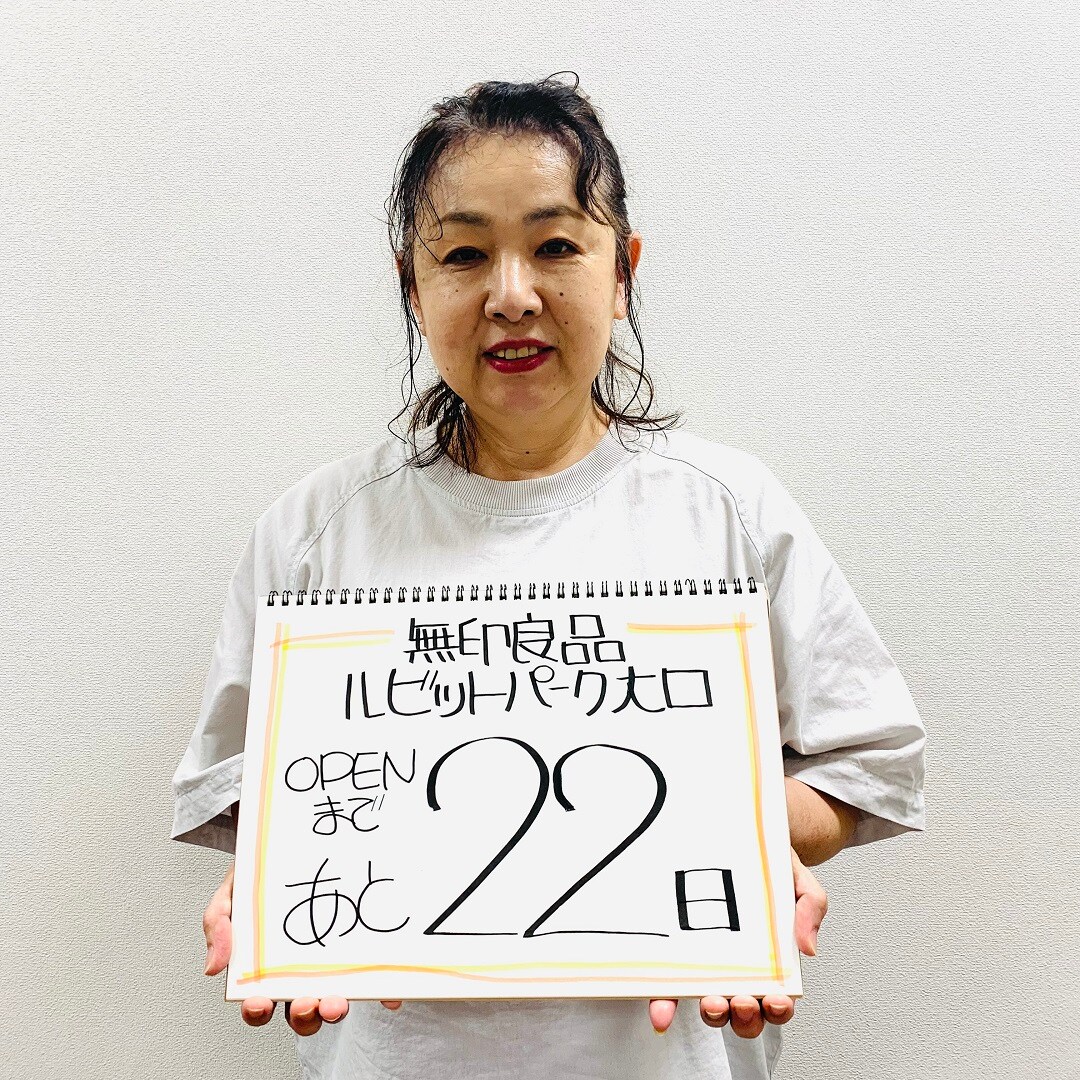 無印良品
ルビットパーク大口
OPEN
まで
あと
22日